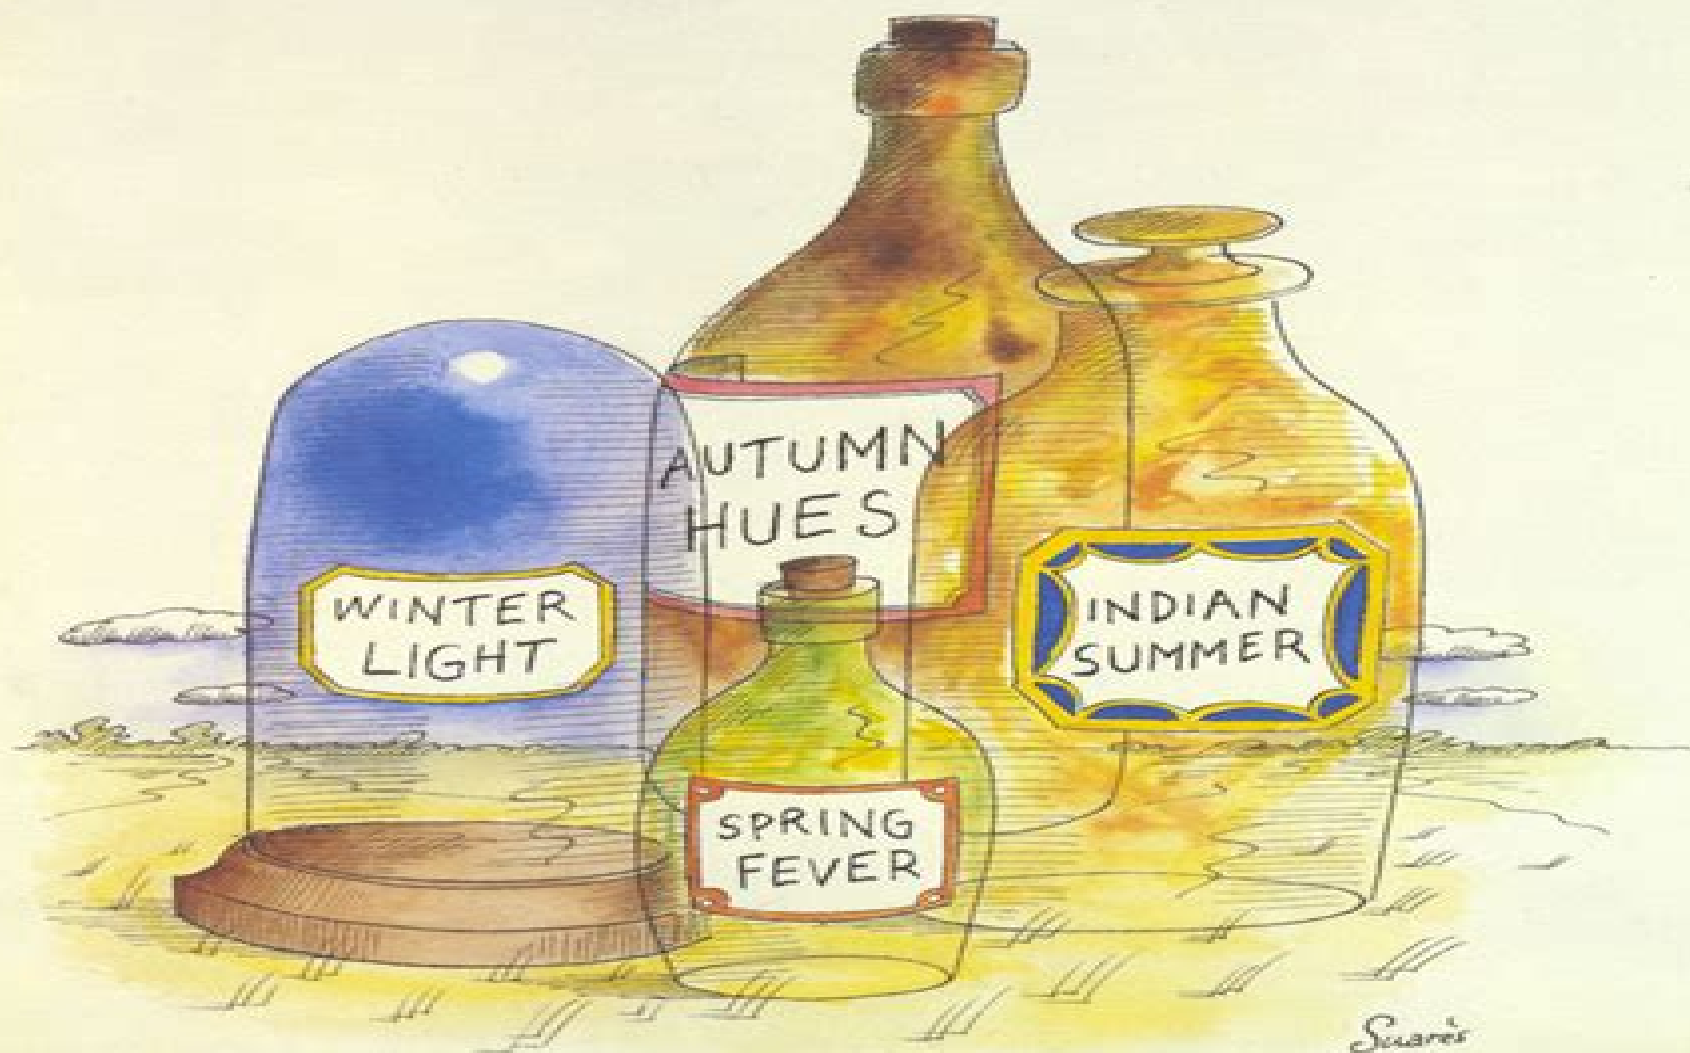 AUTUMN
HUES
WINTER
LIGHT
INDIAN
SUMMER
SPRING
FEVER
Suarès